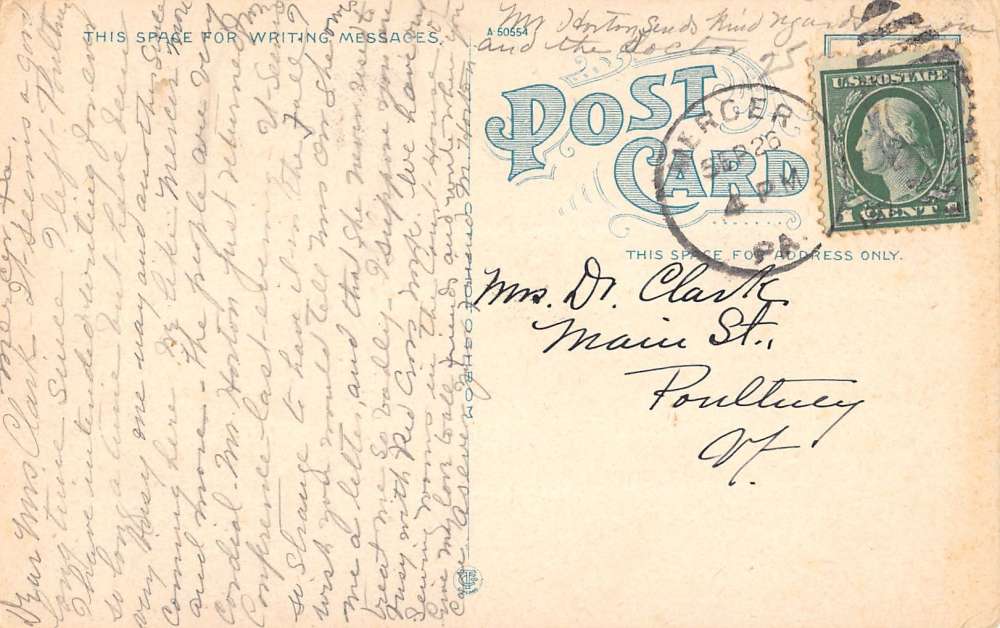 THIS SPACE FOR WRITING MESSAGES.
A 50554
Mr Horton sends kind regards to you
and the doctor
POST
CARD
MERCER
SEP 26
4 PM
PA.
U.S. POSTAGE
1 CENT 1
THIS SPACE FOR ADDRESS ONLY.
Mrs. Dr. Clark
Main St.,
Poultney
Vt.
Mercer Pa
Dear Mrs. Clark- It seems a good
long time since I left Poultney
I have intended writing for ever
so long a time but have been
very busy one way and another since
coming here. We like Mercer more
and more- the people are very
cordial. Mr Horton just returned from
Conference last evening. It seems
so strange to have it in the Fall
wish you would tell Mrs she owes
me a letter, and that she mustn't
treat me so badly- I suppose you are
busy with Red Cross work. We have our
sewing rooms in the Court House
Give my love to all friends and write when you
can. As ever M. Horton